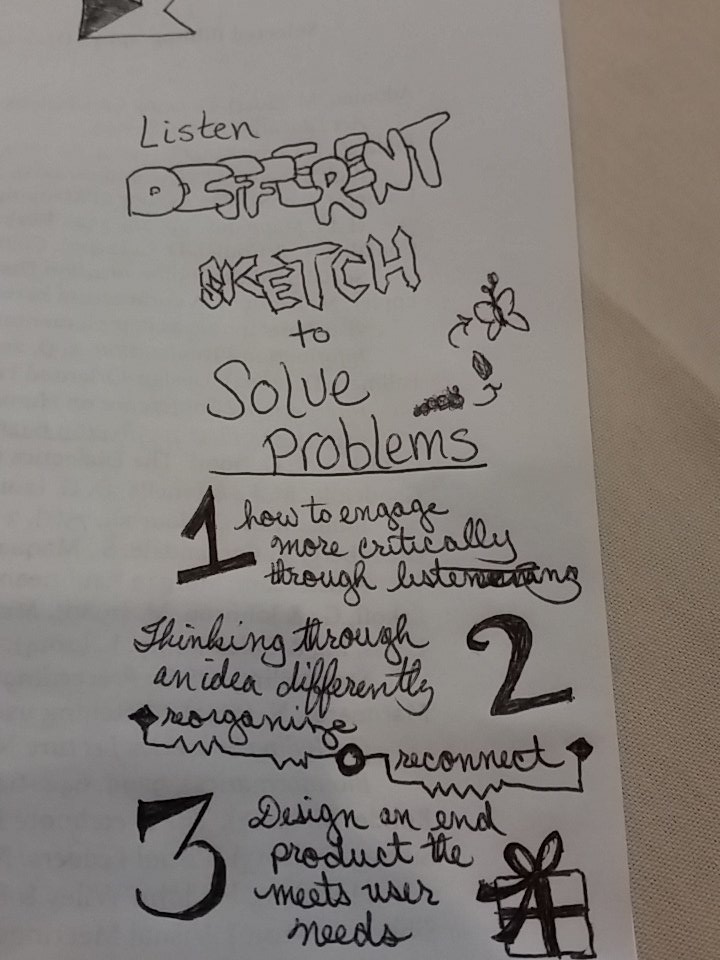 Listen
DIFFERENT
SKETCH
to
Solve
Problems
1 how to engage
more critically
through listening
Thinking through
an idea differently 2
reorganize
reconnect
3 Design an end
product the
meets user
needs